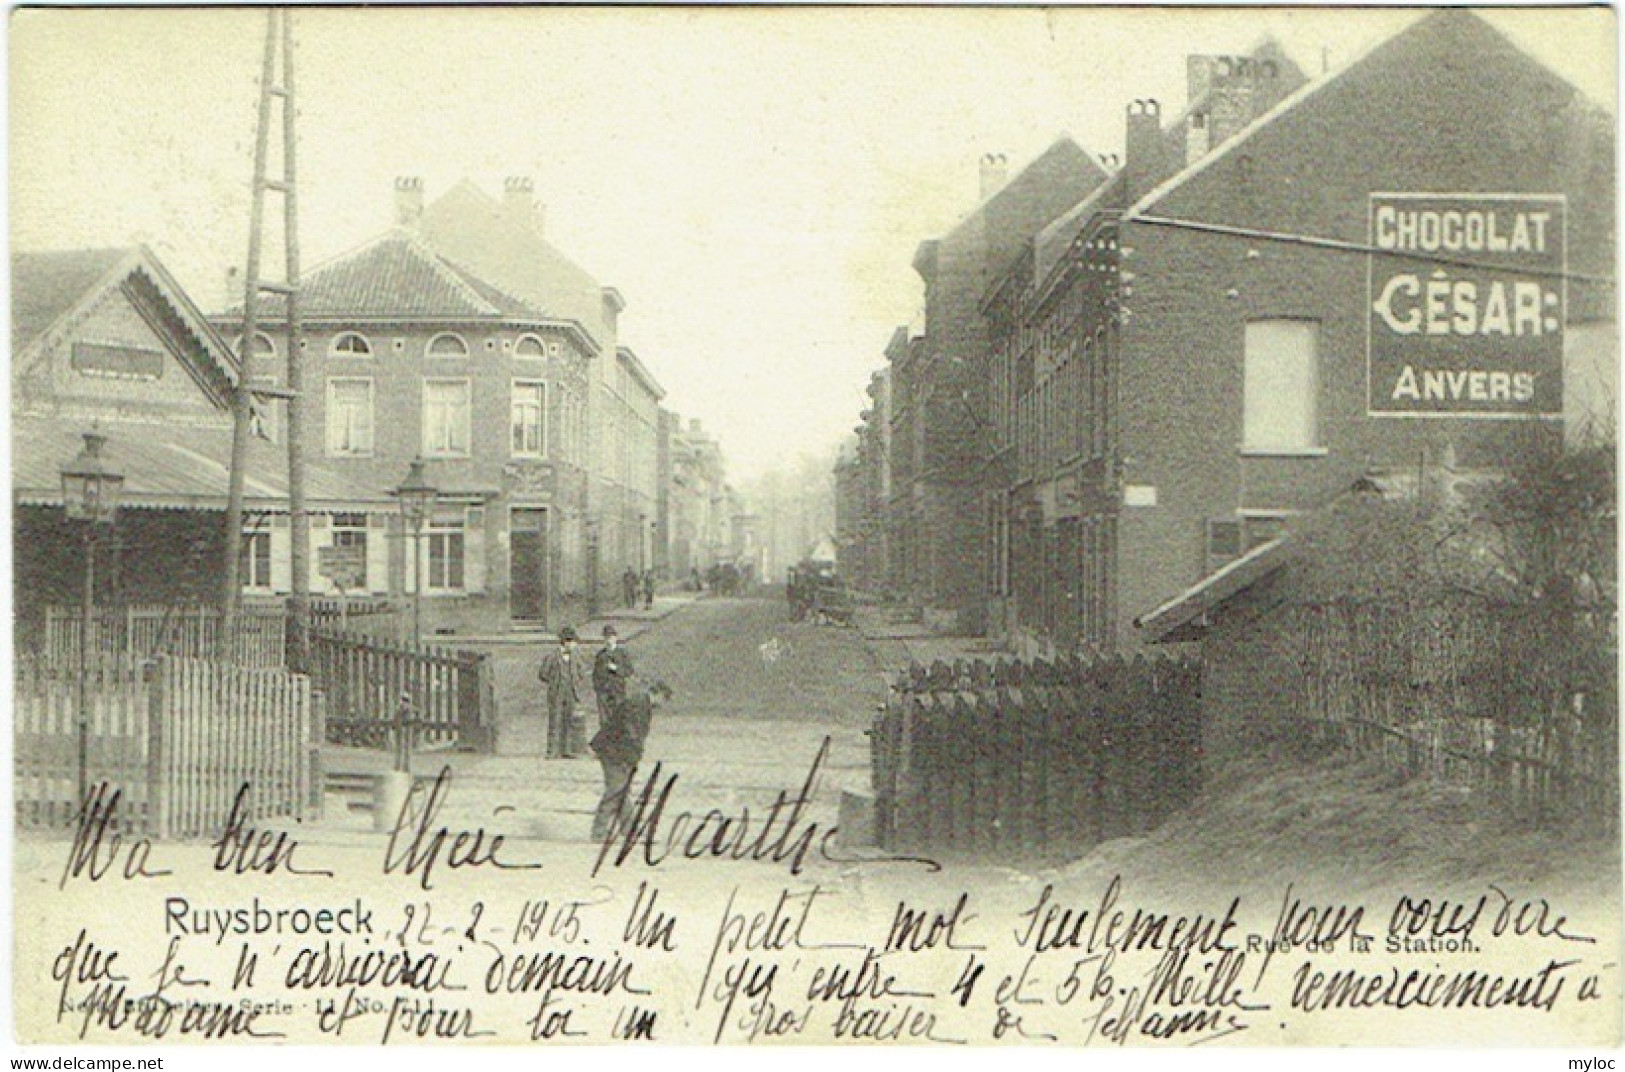 CHOCOLAT
CÉSAR:
ANVERS
Ma bien chère Marthe
Ruysbroeck, 22-2-1905. Un petit mot seulement pour vous dire
Rue de la Station.
que je n'arriverai demain qu'entre 4 et 5h. Mille remerciements à
Serie 11 No. 711
Madame et pour toi un gros baiser de Jehanne.
delcampe.net
myloc